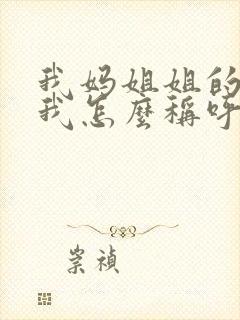 我妈姐姐的
我怎麼稱呼
崇禎